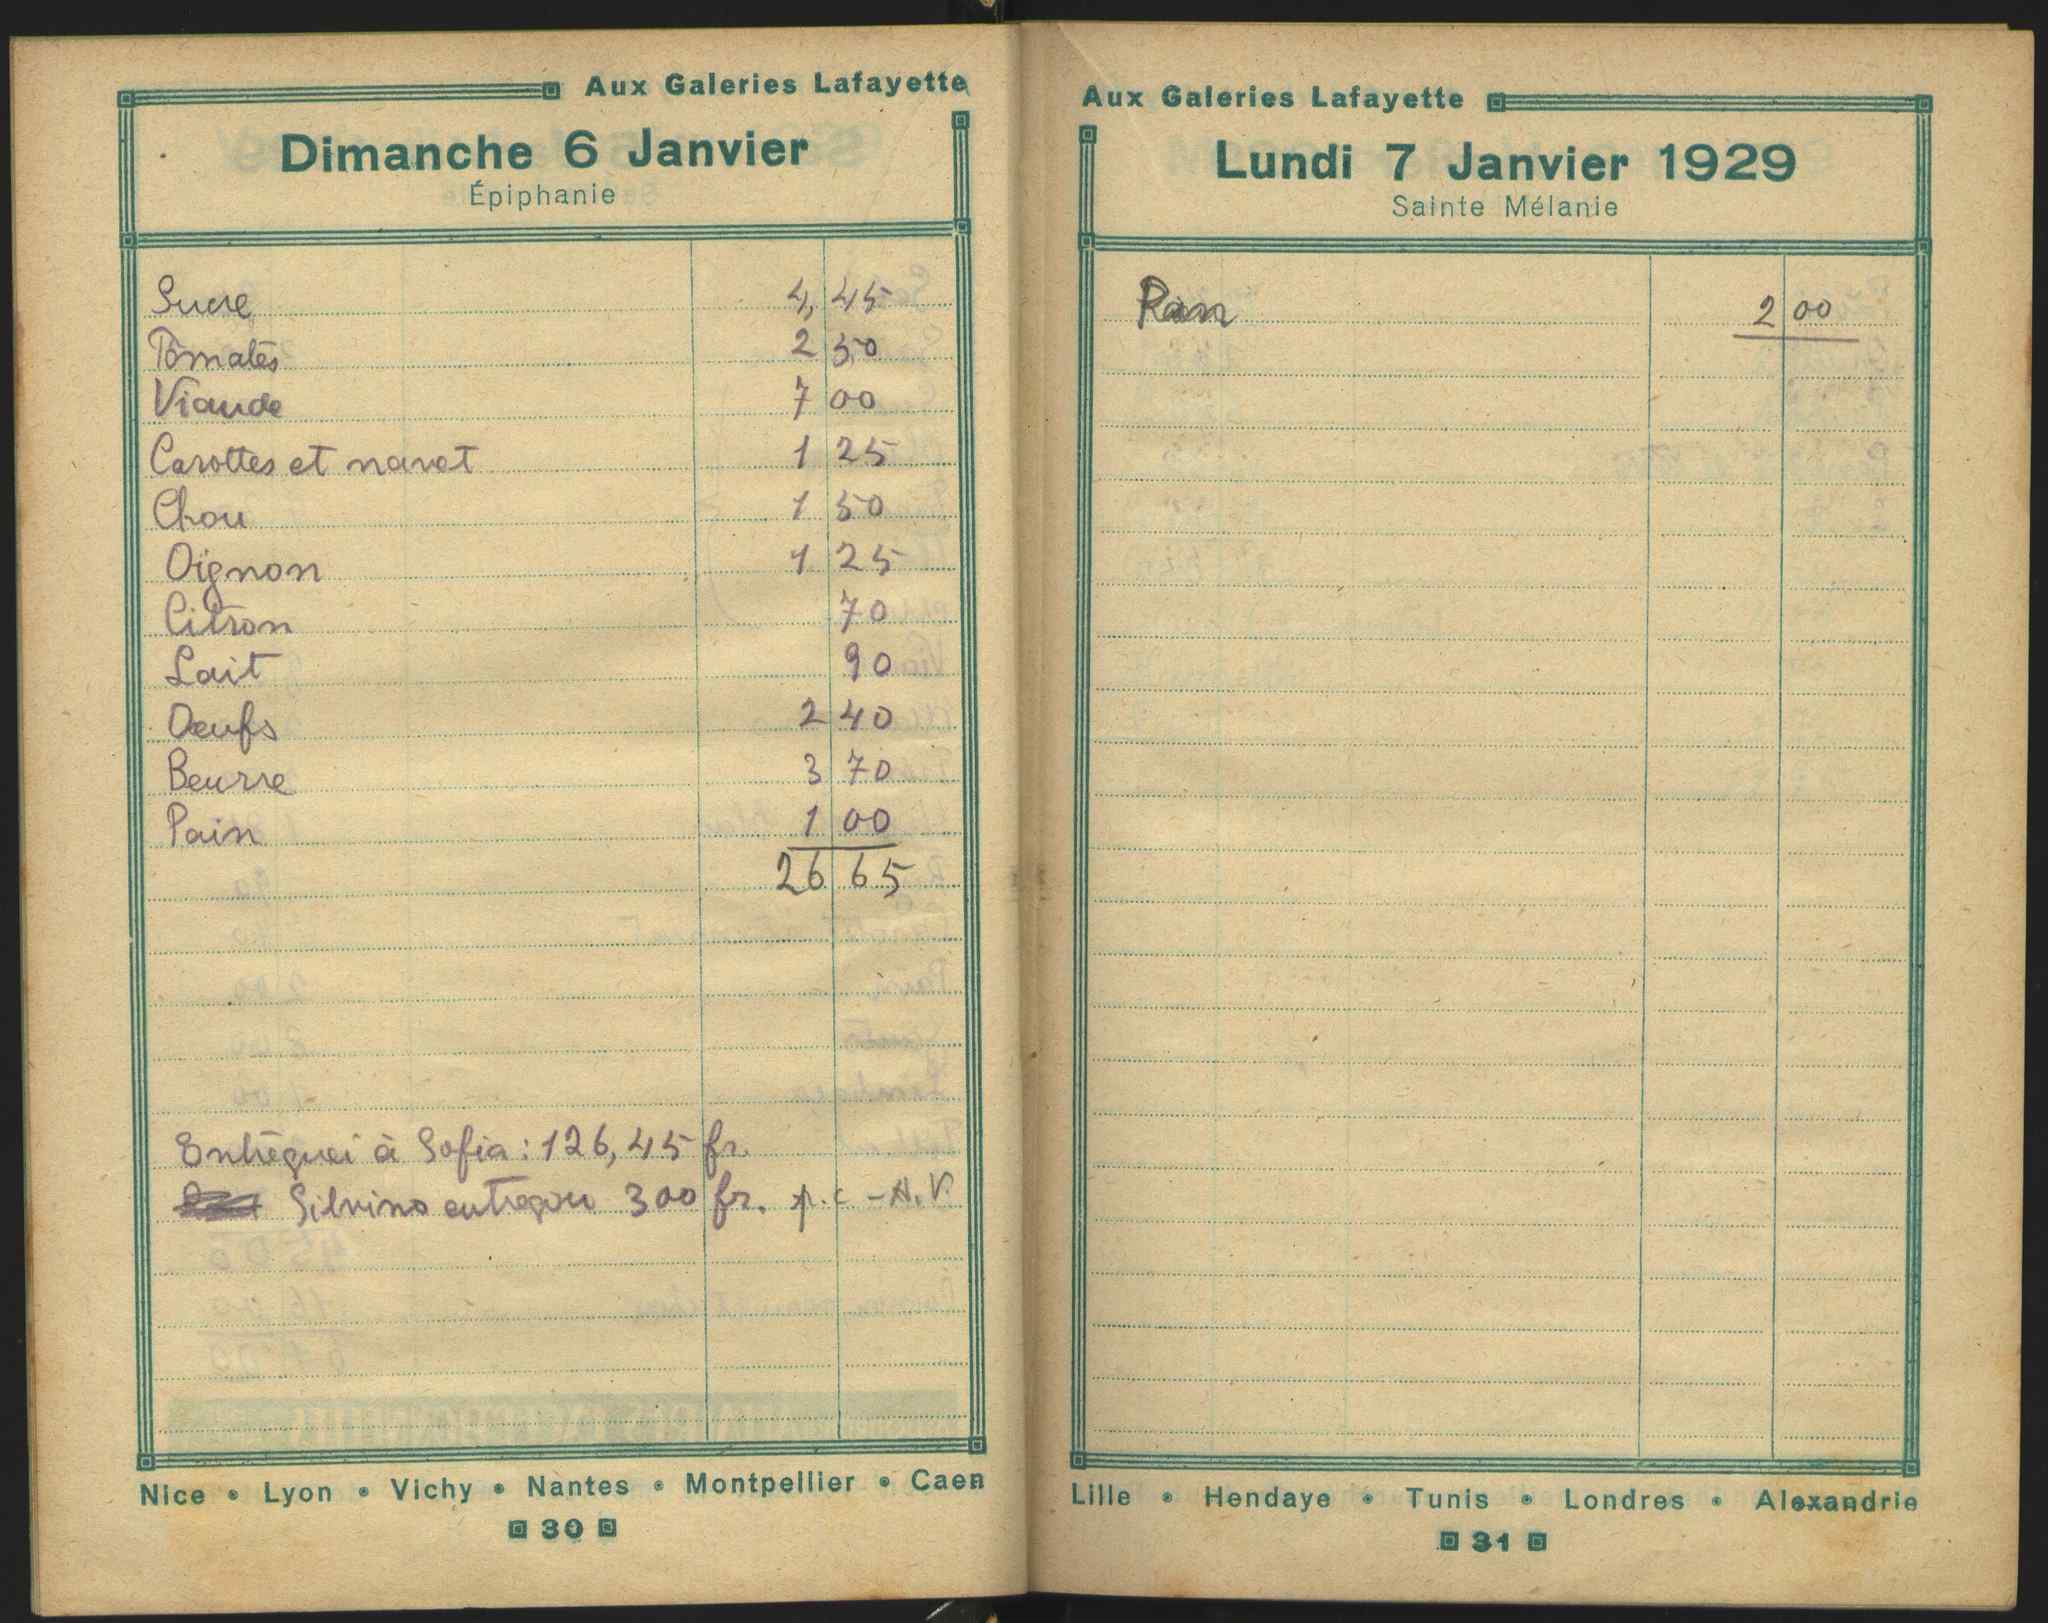 Aux Galeries Lafayette
Dimanche 6 Janvier
Épiphanie
Sucre 4,45
Tomates 2 50
Viande 7 00
Carottes et navet 1 25
Chou 1 50
Oignon 1 25
Citron 70
Lait 90
Oeufs 2 40
Beurre 3 70
Pain 1 00
26 65
Entreguei à Sofia: 126,45 fr.
Silvino entregou 300 fr. p.c - A.V.
Nice • Lyon • Vichy • Nantes • Montpellier • Caen
30
Aux Galeries Lafayette
Lundi 7 Janvier 1929
Sainte Mélanie
Pain 2 00
Lille • Hendaye • Tunis • Londres • Alexandrie
31